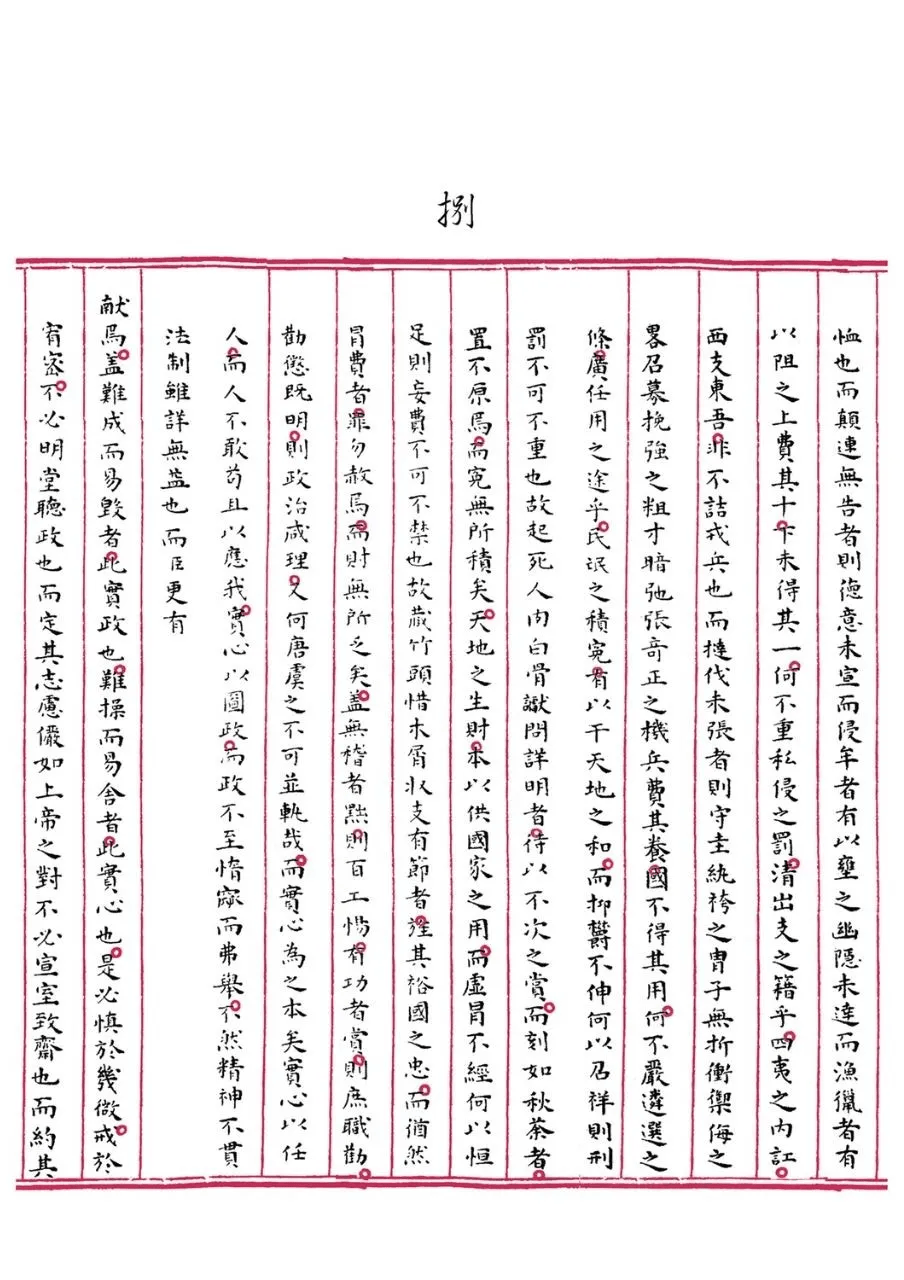 捌
恤也而顛連無告者則德意未宣而侵牟者有以壅之幽隱未達而漁獵者有
以阻之上費其十下未得其一何不重私侵之罰清出支之籍乎四夷之內訌
西支東吾非不詰戎兵也而撻伐未張者則守圭紈袴之胄子無折衝禦侮之
畧召募挽強之粗才暗弛張奇正之機兵費其養國不得其用何不嚴遴選之
條廣任用之途乎民氓之積冤有以干天地之和而抑欝不伸何以召祥則刑
罰不可不重也故起死人肉白骨讞問詳明者待以不次之賞而刻如秋荼者
置不原焉而冤無所積矣天地之生財本以供國家之用而虛冒不經何以恒
足則妄費不可不禁也故藏竹頭惜木屑收支有節者旌其裕國之忠而猶然
冒費者罪勿赦焉而財無所乏矣盖無稽者黜則百工惕有功者賞則庶職勸
勸懲既明則政治咸理又何唐虞之不可並軌哉而實心為之本矣實心以任
人而人不敢苟且以應我實心以圖政而政不至惰窳而弗舉不然精神不貫
法制雖詳無益也而臣更有
献焉盖難成而易毀者此實政也難操而易舍者此實心也是必慎於幾微戒於
宥宻不必明堂聽政也而定其志慮儼如上帝之對不必宣室致齋也而約其